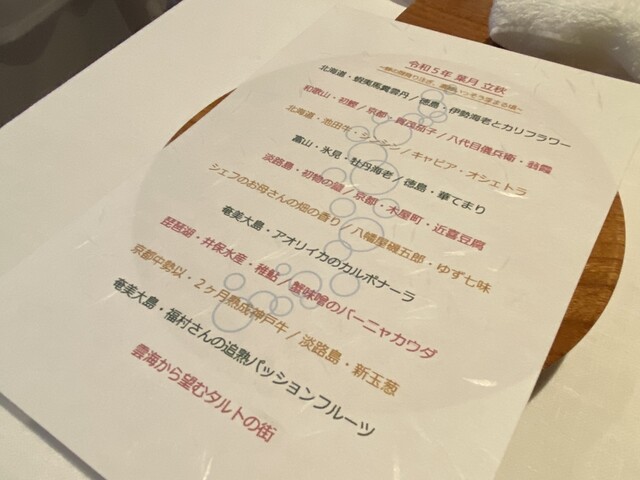 令和5年 葉月 立秋
北海道・蝦夷馬糞雲丹 / 徳島・伊勢海老とカリフラワー
和歌山・初鰹 / 京都・賀茂茄子 / 八代目儀兵衛・翁霞
北海道・池田牛・シンシン / キャビア・オシェトラ
富山・氷見・牡丹海老 / 徳島・華てまり
淡路島・初物の鱧 / 京都・木屋町・近喜豆腐
シェフのお母さんの畑の香り / 八幡屋礒五郎・ゆず七味
奄美大島・アオリイカのカルボナーラ
琵琶湖・井保水産・稚鮎 / 蟹味噌のバーニャカウダ
京都中勢以・2ヶ月熟成神戸牛 / 淡路島・新玉葱
奄美大島・福村さんの追熟パッションフルーツ
雲海から望むタルトの街